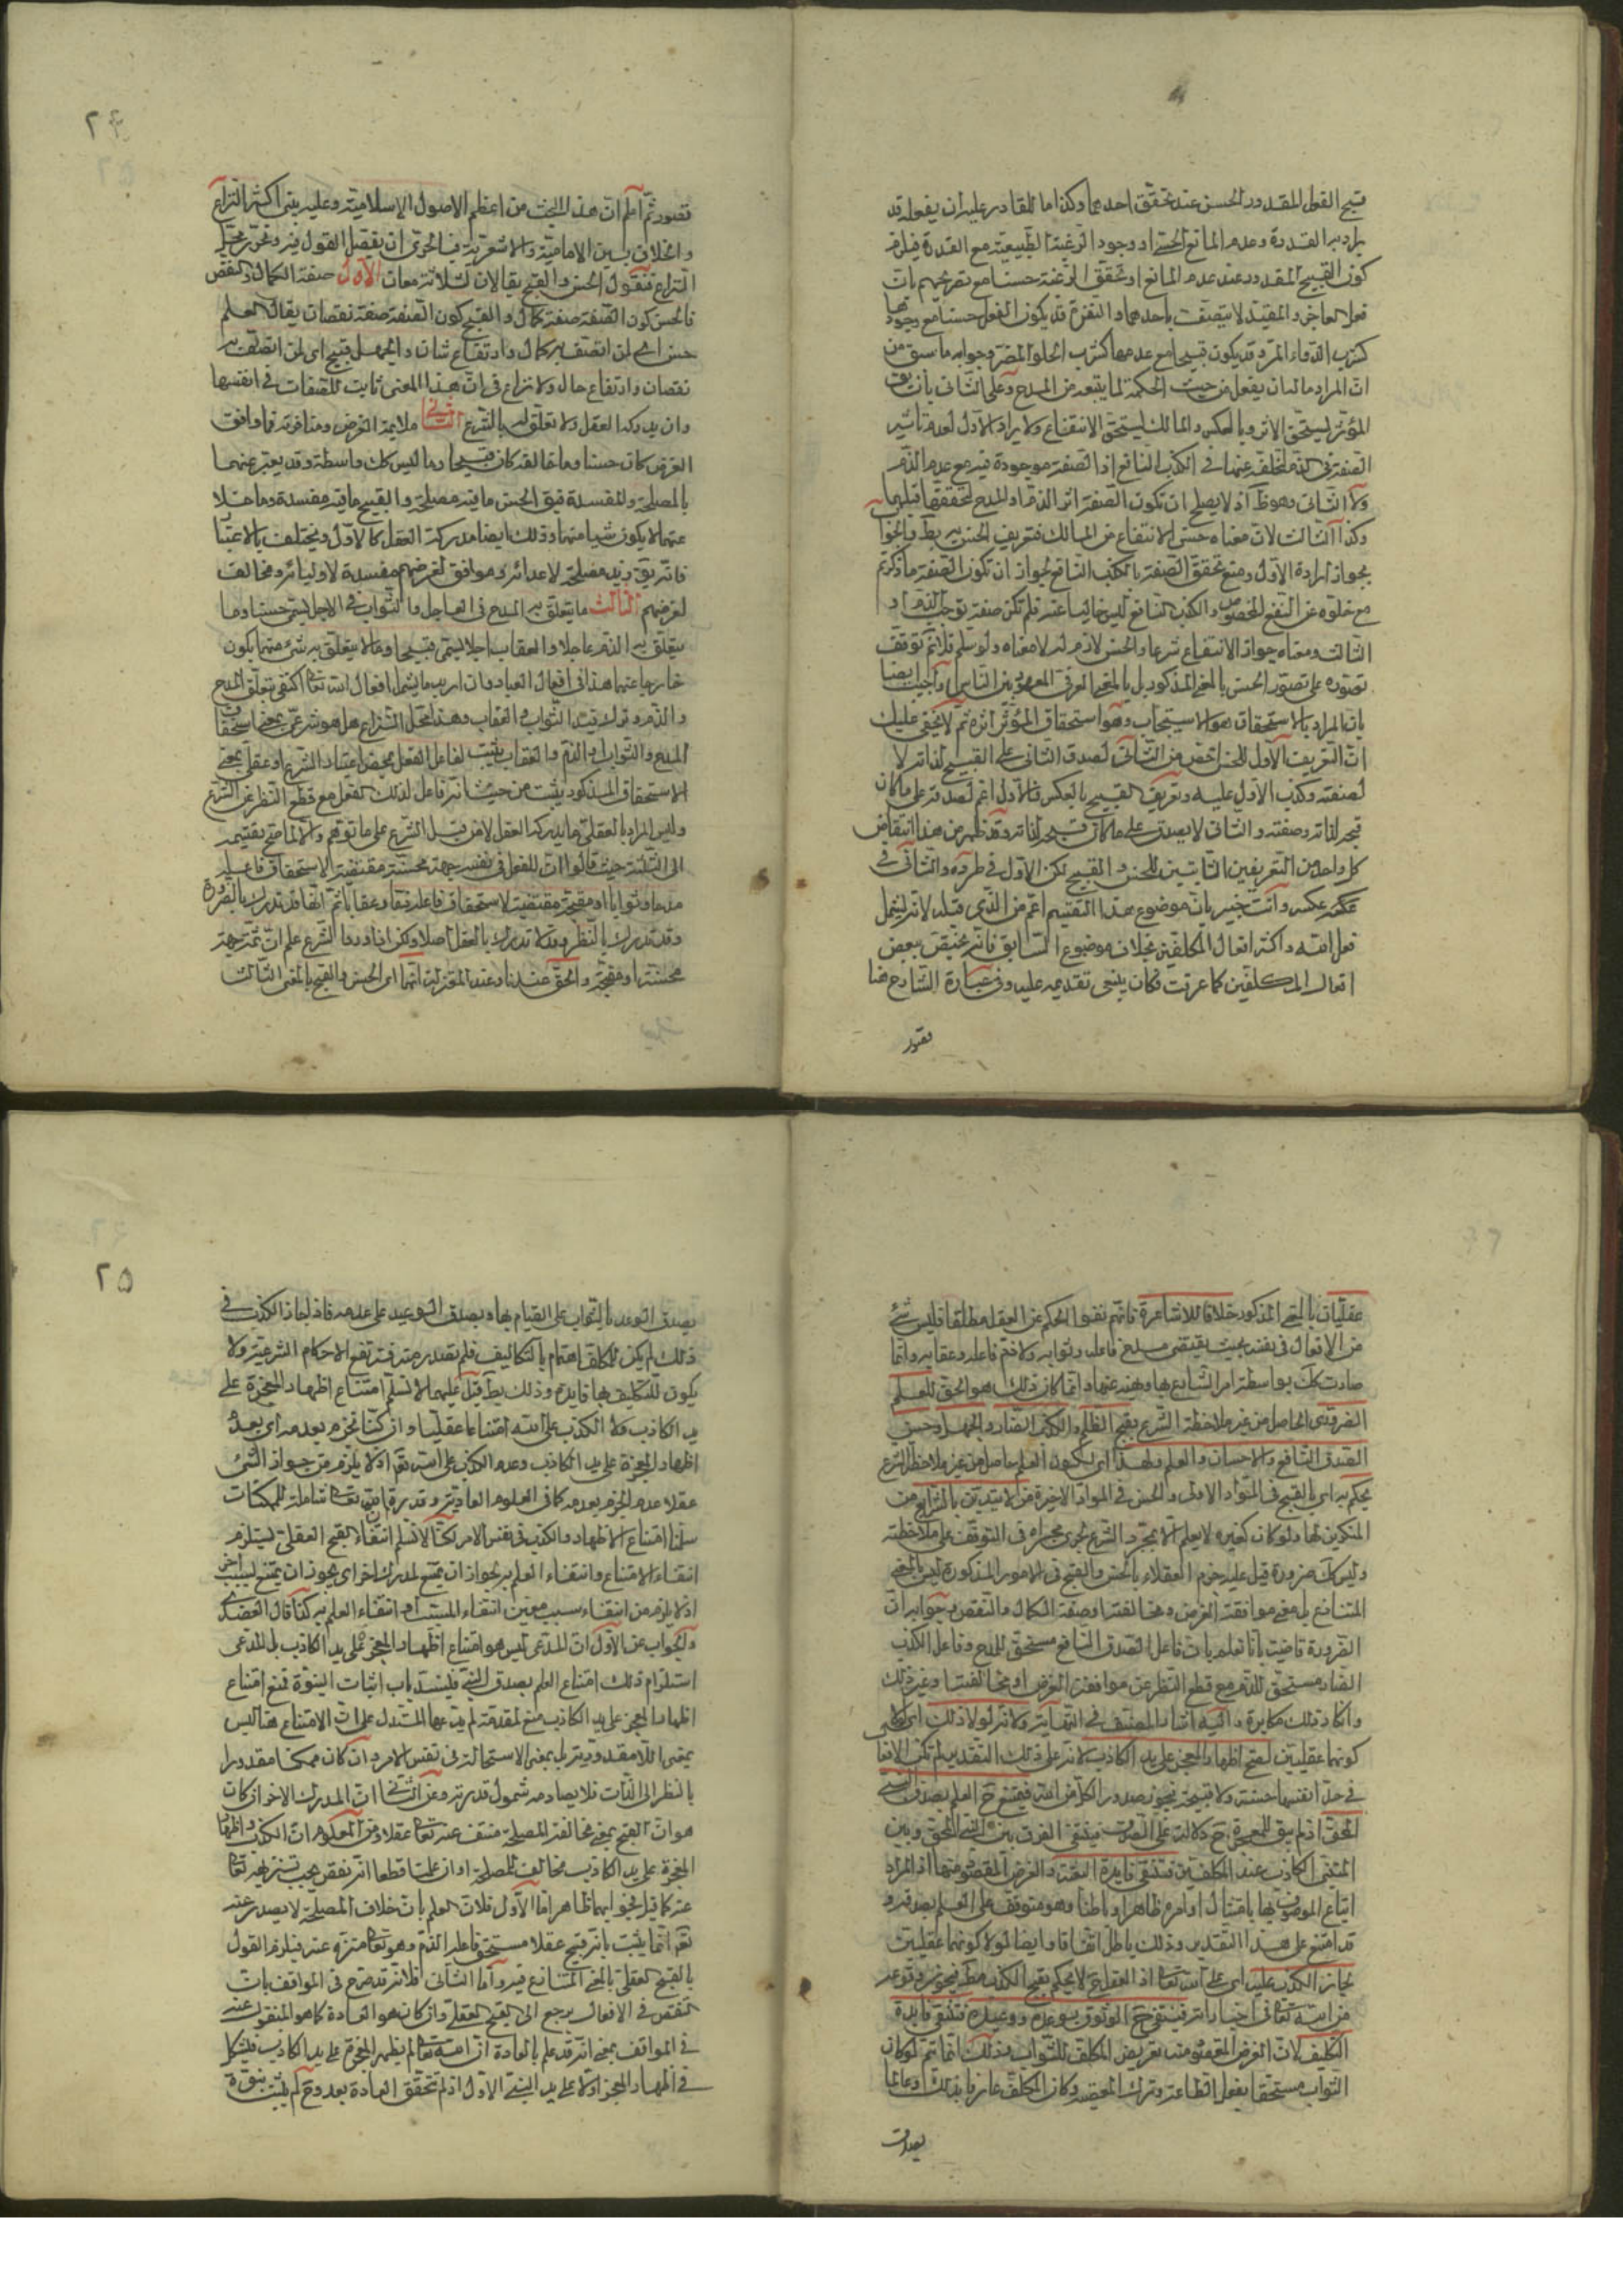 قبيح الفعل المقدور الحسن عند تحقق احدهما وكذا ما للقادر عليه ان يفعله قد
يراد به القدرة وعدم المانع الحسى او وجود الرغبة الطبيعية مع القدرة فيلزم
كون القبيح المقدور عند عدم المانع او تحقق الرغبة حسنا مع تصريحهم بان
فعل العاجز والمقيد لا يتصف باحدهما والتنفر قد يكون الفعل حسنا مع وجودها
كشرب الدواء المر وقد يكون قبيحا مع عدمها كشرب الحلو المضر وجوابه ما سبق من
ان المراد ما له ان يفعل من حيث الحكمة لما يتبعه من المدح وعلى الثانى بان
المؤثر يستحق الاثر وبالعكس والمالك يستحق الانتفاع ولا يراد الاول لعدم تاثير
الصفة فى الذم لتخلفه عنها فى الكذب النافع اذ الصفة موجودة فيه مع عدم الذم
ولا الثانى وهو ظ اذ لا يصلح ان تكون الصفة اثر الذم او المدح لتحققها قبلهما
وكذا الثالث لان معناه حسن الانتفاع من المالك فتعريف الحسن به يط والجواب
بجواز ارادة الاول ومنع تحقق الصفة بالكذب النافع لجواز ان تكون الصفة ما ذكرتم
مع خلوه عن النفع المخصوص والكذب النافع ليس خاليا عنه فلم تكن صفة توجب الذم او
الثالث ومعناه جواز الانتفاع شرعا والحسن لازم له لا معناه ولو سلم فلا نم توقف
تصوره على تصور الحسن بالمعنى المذكور بل بالمعنى العرفى المعهود بين الناس واجيب ايضا
بان المراد بالاستحقاق هو الاستيجاب وهو استحقاق المؤثر اثره ثم لا يخفى عليك
ان التعريف الاول للحسن اخص من الثانى لصدق الثانى على القبيح لذاته لا
لصفته وكذب الاول عليه وتعريف القبيح بالعكس فالاول اعم لصدقه على ما كان
قبحه لذاته وصفته والثانى لا يصدق على ما كان قبحه لذاته وقد ظهر من هذا انتقاض
كل واحد من التعريفين الثابتين للحسن والقبيح لكن الاول فى طرده والثانى فى
عكسه وانت خبير بان موضوع هذا التقسيم اعم من الذى قبله لانه يشمل
فعل الله واكثر افعال المكلفين بخلاف موضوع السابق فانه يختص ببعض
افعال المكلفين كما عرفت فكان ينبغى تقديمه عليه وفى عبارة الشارح هنا
قصور
٢٤
قصور ثم اعلم ان هذا المبحث من اعظم الاصول الاسلامية وعليه يبنى اكثر النزاع
والخلاف بين الامامية والاشعرية فبالحرى ان يفصل القول فيه وتحرر محل
النزاع فنقول الحسن والقبح يقالان لثلاثة معان الاول صفة الكمال والنقص
فالحسن كون الصفة صفة كمال والقبح كون الصفة صفة نقصان يقال العلم
حسن اى لمن اتصف به كمال وارتفاع شان والجهل قبيح اى لمن اتصف به
نقصان واتضاع حال ولا نزاع فى ان هذا المعنى ثابت للصفات فى انفسها
وان يدركه العقل ولا تعلق له بالشرع الثانى ملايمة الغرض ومنافرته فما وافق
الغرض كان حسنا وما خالفه كان قبيحا وما ليس كك واسطة وقد يعبر عنهما
بالمصلحة والمفسدة فيق الحسن ما فيه مصلحة والقبيح ما فيه مفسدة وما خلا
عنهما لا يكون شيا منهما وذلك ايضا مدركه العقل كالاول ويختلف بالاعتبار
فان قتل زيد مصلحة لاعدائه وموافق لغرضهم مفسدة لاوليائه ومخالف
لغرضهم الثالث ما يتعلق به المدح فى العاجل والثواب فى الاجل يسمى حسنا وما
يتعلق به الذم عاجلا والعقاب اجلا يسمى قبيحا وما لا يتعلق به شئ منهما يكون
خارجا عنهما هذا فى افعال العباد وان اريد ما يشمل افعال الله تعا اكتفى بتعلق المدح
والذم وترك قيد الثواب والعقاب وهذا محل النزاع هل هو شرعى بمعنى استحقاق
المدح والثواب والذم والعقاب يثبت لفاعل الفعل بمحض اعتبار الشرع او عقلى بمعنى
الاستحقاق المذكور يثبت من حيث انه فاعل لذلك الفعل مع قطع النظر عن الشرع
وليس المراد بالعقلى ما يدركه العقل لا من قبل الشرع على ما توهم والا لما صح تقسيمه
الى الثلثة حيث قالوا ان للفعل فى نفسه جهة محسنة مقتضية لاستحقاق فاعله
مدحا وثوابا او مقبحة مقتضية لاستحقاق فاعله ذما وعقابا ثم انها قد تدرك بالضرورة
وقد تدرك بالنظر وقد لا تدرك بالعقل اصلا ولكن اذا ورد الشرع علم ان ثمة جهة
محسنة او مقبحة والحق عندنا وعند المعتزلة انهما اى الحسن والقبح بالمعنى الثالث
عقليان بالمعنى المذكور خلافا للاشاعرة فانهم نفوا الحكم عن العقل مطلقا فليس شئ
من الافعال فى نفسه بحيث يقتضى مدح فاعله وثوابه ولا ذم فاعله وعقابه وانما
صارت كك بواسطة امر الشارع بها ونهيه عنها وانما كان ذلك هو الحق للعلم
الضرورى الحاصل من غير ملاحظة الشرع بقبح الظلم والكذب الضار والجهل وحسن
الصدق النافع والاحسان والعلم ولهذا اى لكون العلم حاصل من غير ملاحظة الشرع
يحكم به اى بالقبح فى المواد الاولى والحسن فى المواد الاخيرة من لا يتدين بالشرايع من
المنكرين لها ولو كان كغيره لا يعلم الا بمجرد الشرع لجرى مجراه فى التوقف على ملاحظته
وليس كك ضرورة قيل عليه جزم العقلاء بالحسن والقبح فى الامور المذكورة ليس بالمعنى
المتنازع بل بمعنى موافقة الغرض ومخالفته او صفة الكمال والنقص وجوابه ان
الضرورة قاضية بانا نعلم بان فاعل الصدق النافع مستحق للمدح وفاعل الكذب
الضار مستحق للذم مع قطع النظر عن موافقة الغرض او مخالفتها وغير ذلك
وانكار ذلك مكابرة واليه اشار المصنف فى النهاية ولانه لولا ذلك اى لولا
كونهما عقليين لصح اظهار المعجز على يد الكاذب لانه على ذلك التقدير لم تكن الافعال
فى حد انفسها حسنة ولا قبيحة فيجوز صدور الكل من الله فيمتنع ح العلم بصدق النبى
المحق اذ لم يبق للمعجزة ح دلالة على الصدق فينتفى الفرق بين النبى المحق وبين
المتنبى الكاذب عند المكلفين فتنتفى فايدة البعثة والغرض المقصود منها اذ المراد
اتباع الموصوف بها بامتثال اوامره ظاهرا وباطنا وهو متوقف على العلم بصدقه و
قد امتنع على هذا التقدير وذلك باطل اتفاقا وايضا لولا كونهما عقليين
لجاز الكذب عليه اى على الله تعا اذ العقل ح لا يحكم بقبح الكذب مط فيجوز وقوعه
من الله تعا فى اخباراته فينتفى ح الوثوق بوعده ووعيده فتنتفى فايدة
التكليف لان الغرض المقصود منه تعريض المكلف للثواب وذلك انما تم لو كان
الثواب مستحقا بفعل الطاعة وترك المعصية وكان المكلف عارفا بذلك وعالما
بصدق
٢٥
بصدق الوعد بالثواب على القيام بها وبصدق الوعيد على عدمه فاذا جاز الكذب فى
ذلك لم يكن للمكلف اهتمام بالتكاليف فلم تصدر منه فترتفع الاحكام الشرعية ولا
يكون للتكليف بها فايدة وذلك بط قيل عليهما لا نسلم امتناع اظهار المعجزة على
يد الكاذب ولا الكذب على الله امتناعا عقليا وان كنا نجزم بعدمه اى بعدم
اظهار المعجزة على يد الكاذب وعدم الكذب على الله تعا اذ لا يلزم من جواز الشئ
عقلا عدم الجزم بعدمه كما فى العلوم العادية وقدرة الله تعا شاملة للممكنات
سلمنا امتناع الاظهار والكذب فى نفس الامر لكنا لا نسلم انتفاء القبح العقلى يستلزم
انتفاء الامتناع وانتفاء العلم به لجواز ان يمتنع لمدرك اخر اى يجوز ان يمتنع لسبب اخر
اذ لا يلزم من انتفاء سبب معين انتفاء المسبب او انتفاء العلم به كذا قال العضدى
والجواب عن الاول ان المدعى ليس هو امتناع اظهار المعجز على يد الكاذب بل المدعى
استلزام ذلك امتناع العلم بصدق النبى فينسد باب اثبات النبوة فمنع امتناع
اظهار المعجز على يد الكاذب منع لمقدمة لم يدعها المستدل على ان الامتناع هنا ليس
بمعنى اللامقدورية بل بمعنى الاستحالة فى نفس الامر وان كان ممكنا مقدورا
بالنظر الى الذات فلا يصادمه شمول قدرته وعن الثانى ان المدرك الاخر ان كان
هو ان القبح بمعنى مخالفة المصلحة منتف عنه تعا عقلا ومن المعلوم ان الكذب واظهار
المعجزة على يد الكاذب مخالف للمصلحة او ان علمنا قطعا انه نقص يجب تنزيهه تعا
عنه كما قيل فجوابهما ظاهر اما الاول فلان العلم بان خلاف المصلحة لا يصدر عنه
تعا انما يثبت بانه قبيح عقلا مستحق فاعله الذم وهو تعا منزه عنه فيلزم القول
بالقبح العقلى بالمعنى المتنازع فيه واما الثانى فلانه قد صرح فى المواقف بان
النقص فى الافعال يرجع الى القبح العقلى وان كان هو العادة كما هو المنقول عنه
فى المواقف بمعنى انه قد علم بالعادة ان الله تعا لم يظهر المعجزة على يد الكاذب فيشكل
فى اظهار المعجز اولا على يد النبى الاول اذ لم تتحقق العادة بعد وح لم يثبت نبوة